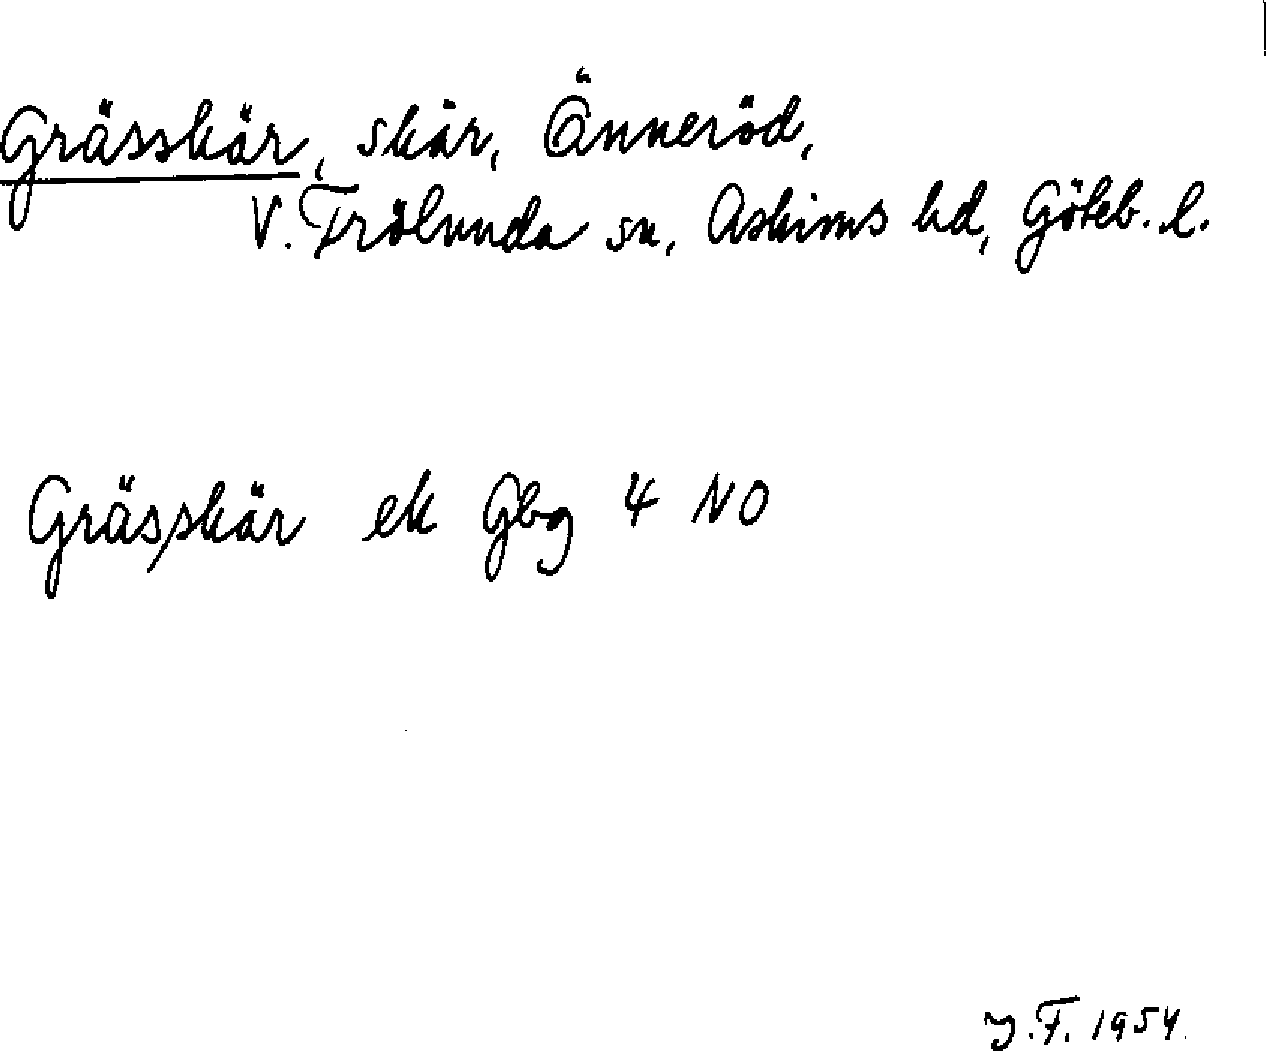 Grässkär, skär, Önneröd,
V. Frölunda sn, Askims hd, Göteb. l.
Gräs/skär ek Gbg 4 NO
J.F. 1954.